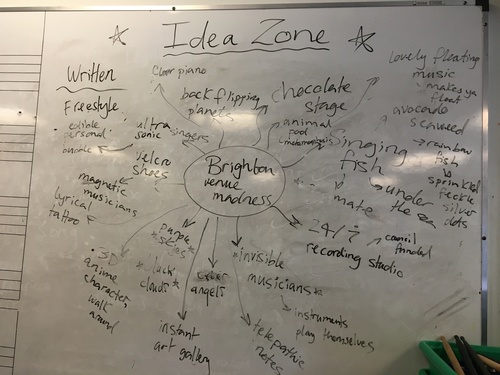 Idea Zone
Written
Freestyle
edible
personal
lyrical
tattoo
magnetic
musicians
velcro
shoes
ultra
sonic
floor piano
back flipping
planets
chocolate
stage
animal
pool
lovely floating
music
makes ya
float
avocado
seaweed
rainbow
fish
sprinkled
silver
dots
singing
fish
under
the sea
mate
Brighton
venue
madness
24/7
recording studio
*invisible
musicians*
instruments
play themselves
telepathic
notes
cyber
angels
instant
art gallery
purple
*skies*
clouds*
3D
anime
character
walk
around